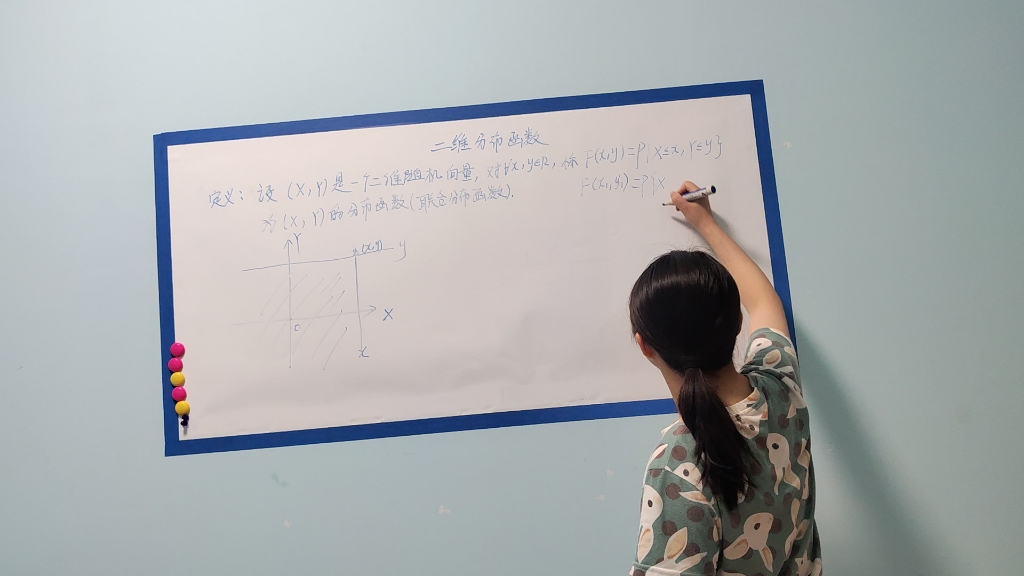 二维分布函数
定义：设 (X,Y) 是一个二维随机向量，对∀x,y∈R，称 F(x,y)=P{X≤x,Y≤y}
为(X,Y)的分布函数(联合分布函数).
F(x₁,y₁)=P{X
Y
(x,y)
y
X
o
x